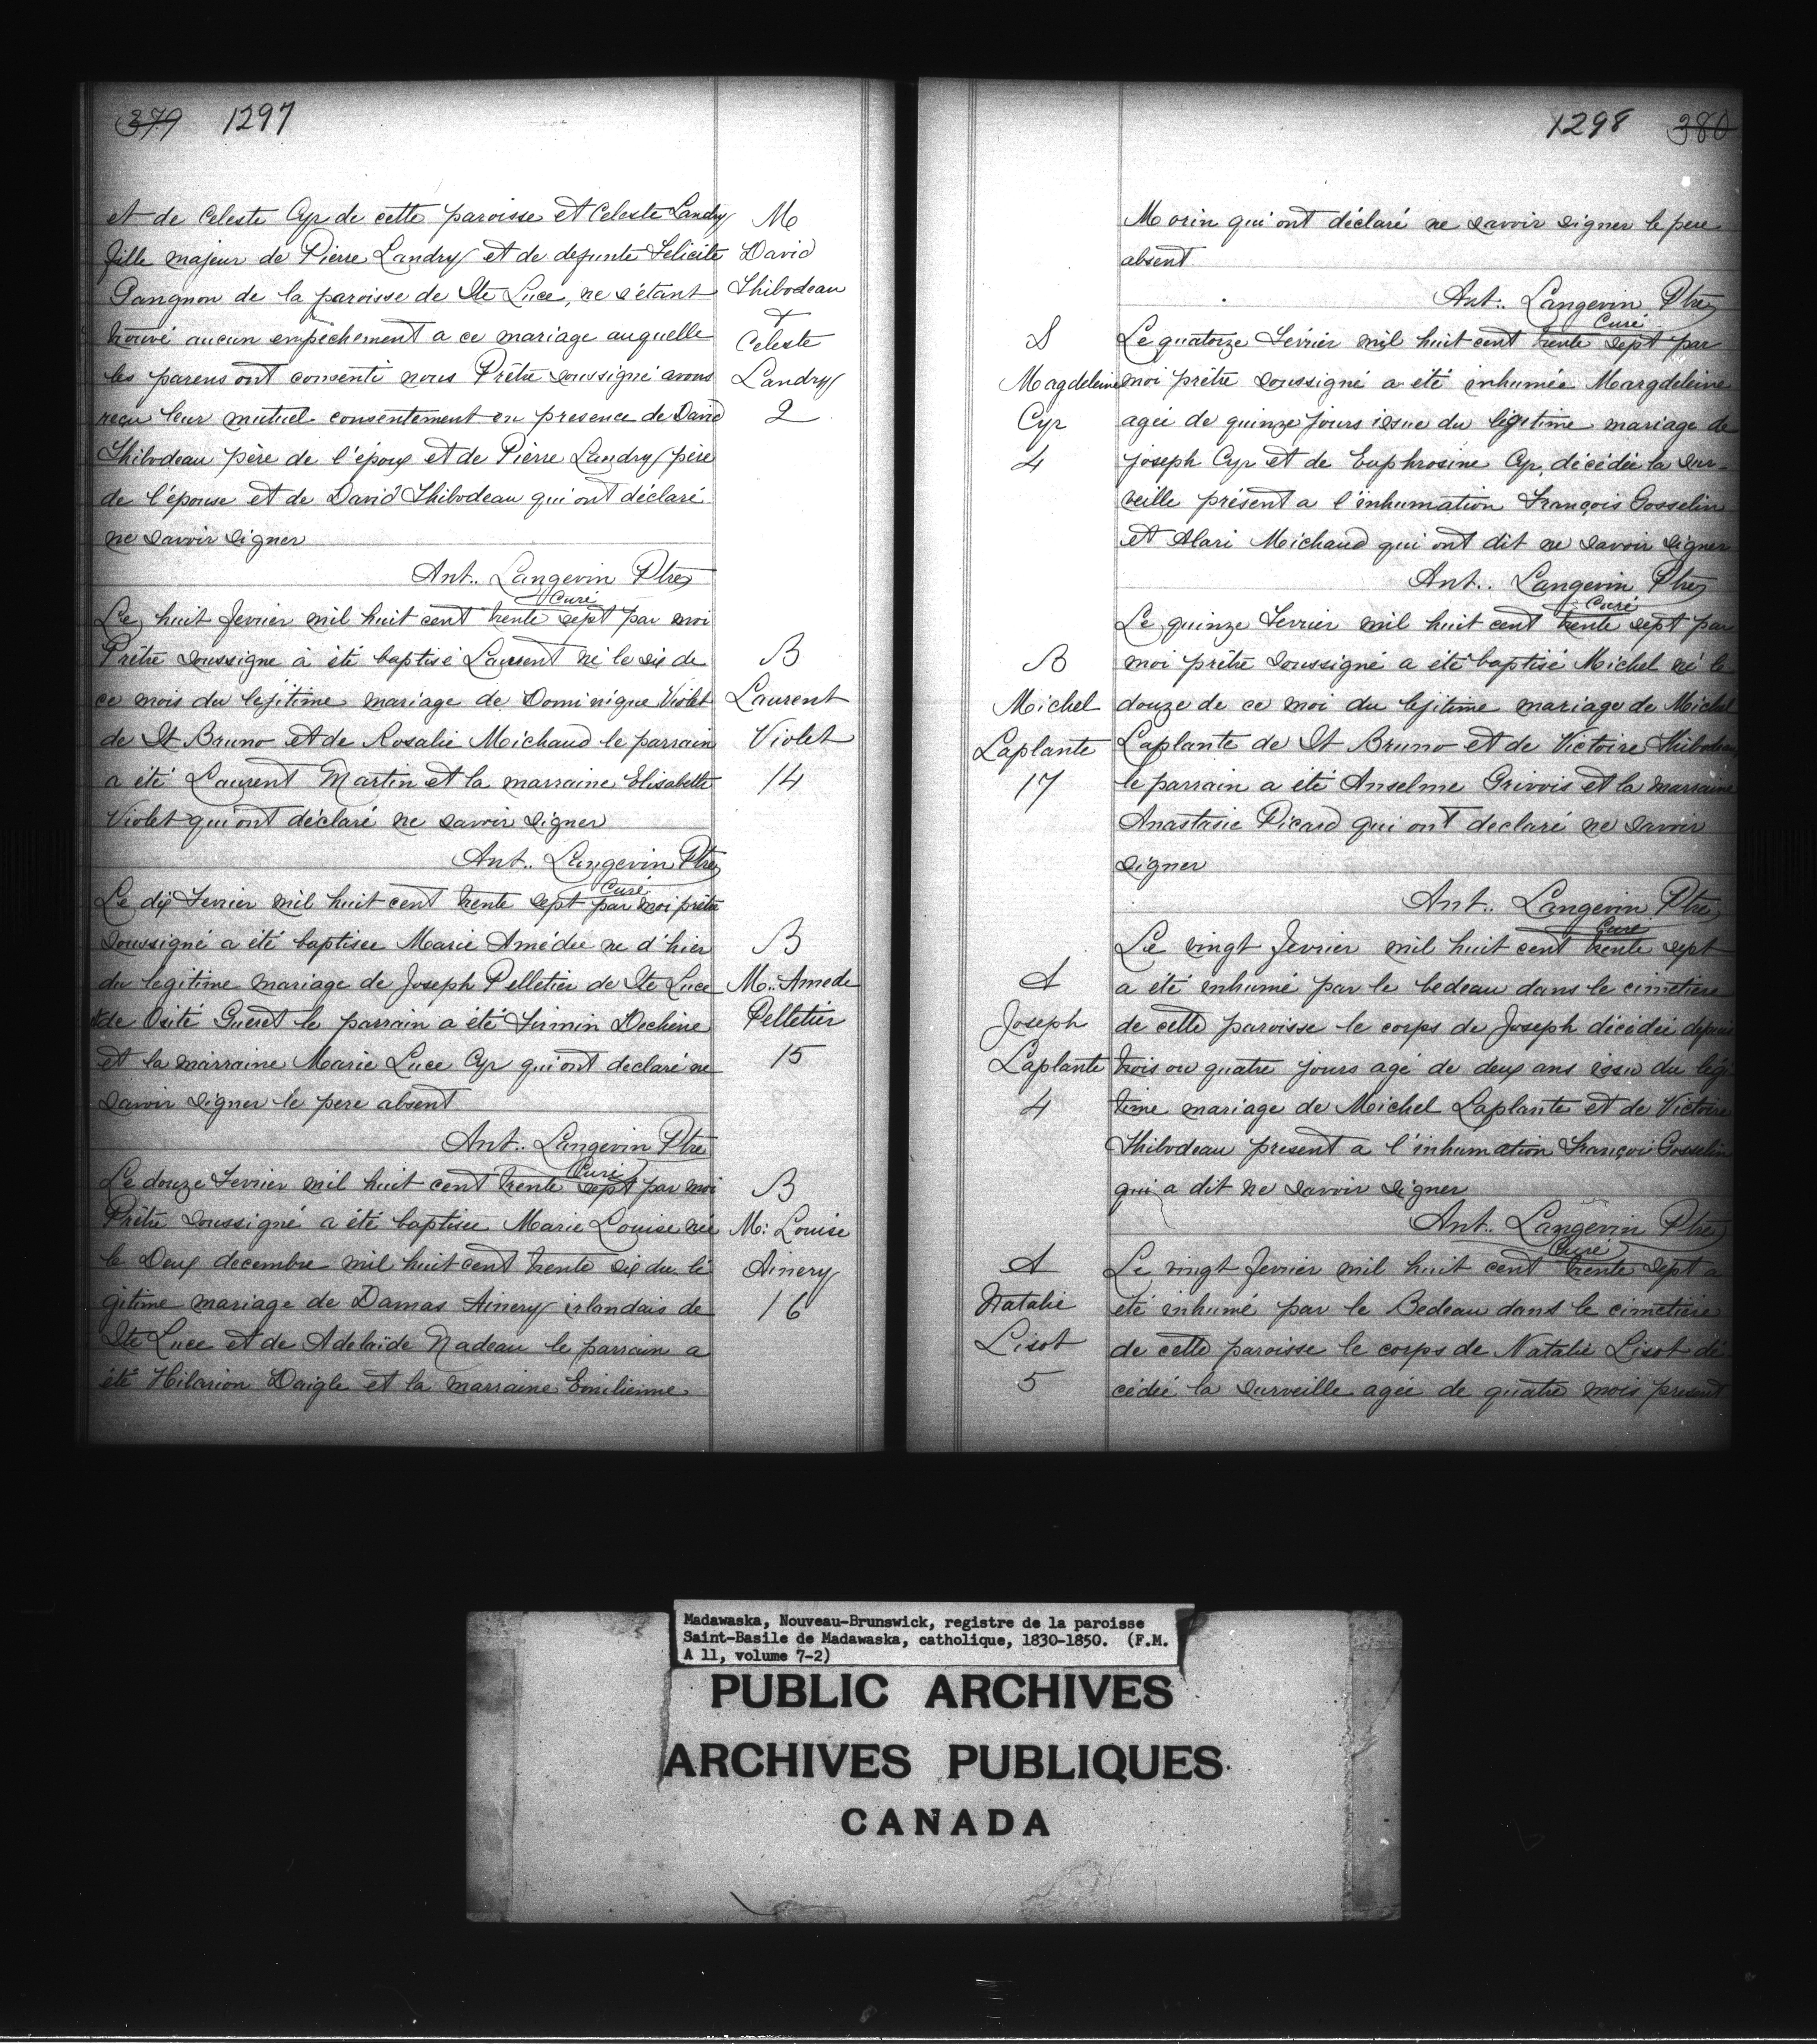 379 1297
et de Celeste Cyr de cette paroisse et Celeste Landry
fille majeur de Pierre Landry et de defunte Felicite
Gangnon de la paroisse de Ste Luce, ne s'étant
trouvé aucun empêchement a ce mariage auquelle
les parens ont consenti nous Prêtre soussigné avons
reçu leur mutuel consentement en presence de David
Thibodeau père de l'époux et de Pierre Landry père
de l'épouse et de David Thibodeau qui ont déclaré
ne savoir signer
Ant.. Langevin Ptre
Curé
M
David
Thibodeau
+
Celeste
Landry
2
Le huit fevrier mil huit cent trente sept par moi
Prêtre soussigne à été baptisé Laurent né le six de
ce mois du legitime mariage de Dominique Violet
de St Bruno et de Rosalie Michaud le parrain
a été Laurent Martin et la marraine Elisabeth
Violet qui ont déclaré ne savoir signer
Ant.. Langevin Ptre
Curé
B
Laurent
Violet
14
Le dix Fevrier mil huit cent trente sept par moi prêtre
soussigné a été baptisee Marie Amédée ne d'hier
du legitime mariage de Joseph Pelletier de Ste Luce
et de Osité Gueret le parrain a été Firmin Dechène
et la marraine Marie Luce Cyr qui ont declaré ne
savoir signer le pere absent
Ant.. Langevin Ptre
Curé
B
M.. Amede
Pelletier
15
Le douze Fevrier mil huit cent trente sept par moi
Prêtre soussigné a été baptisee Marie Louise née
le Deux decembre mil huit cent trente six du lé
gitime mariage de Damas Ainery irlandais de
Ste Luce et de Adelaïde Nadeau le parrain a
été Hilarion Daigle et la marraine Emilienne
B
M: Louise
Ainery
16
1298 380
Morin qui ont déclaré ne savoir signer le pere
absent
Ant.. Langevin Ptre
Curé
S
Magdeleine
Cyr
4
Le quatorze Février mil huit cent trente sept par
moi prêtre soussigné a été inhumée Margdeleine
agée de quinze jours issue du légitime mariage de
Joseph Cyr et de Euphrosine Cyr décédée la sur-
veille présent a l'inhumation François Gosselin
et Alari Michaud qui ont dit ne savoir signer
Ant.. Langevin Ptre
Curé
B
Michel
Laplante
17
Le quinze Fevrier mil huit cent trente sept par
moi prêtre soussigné a été baptisé Michel né le
douze de ce moi du lejitime mariage de Michel
Laplante de St Bruno et de Victoire Thibodeau
le parrain a été Anselme Grivois et la marraine
Anastasie Picard qui ont declaré ne savoir
signer
Ant.. Langevin Ptre
Curé
S
Joseph
Laplante
4
Le vingt fevrier mil huit cent trente sept
a été inhumé par le bedeau dans le cimetière
de cette paroisse le corps de Joseph décédée depuis
trois ou quatre jours agé de deux ans issu du légi
time mariage de Michel Laplante et de Victoire
Thibodeau present a l'inhumation François Gosselin
qui a dit ne savoir signer
Ant.. Langevin Ptre
Curé
S
Natalie
Lisot
5
Le vingt fevrier mil huit cent trente sept a
été inhumé par le Bedeau dans le cimetière
de cette paroisse le corps de Natalie Lisot dé
cédée la surveille agée de quatre mois present
Madawaska, Nouveau-Brunswick, registre de la paroisse
Saint-Basile de Madawaska, catholique, 1830-1850. (F.M.
A 11, volume 7-2)
PUBLIC ARCHIVES
ARCHIVES PUBLIQUES
CANADA